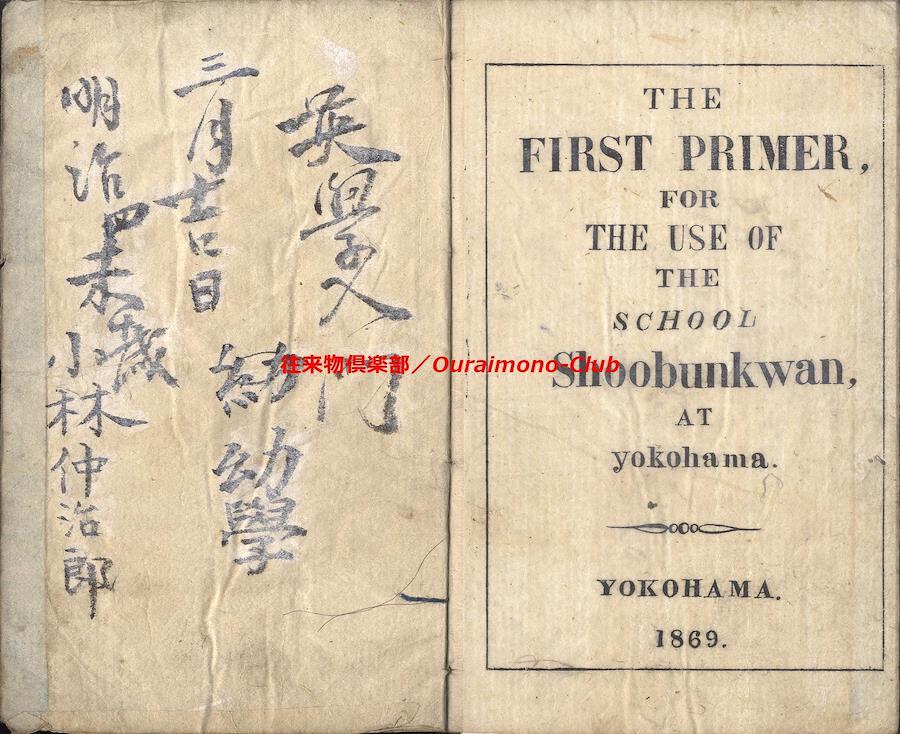 英學入門
幼學
三月吉日
明治四未歳
小林仲治郎
往来物倶楽部／Ouraimono-Club
THE
FIRST PRIMER,
FOR
THE USE OF
THE
SCHOOL
Shoobunkwan,
AT
yokohama.
YOKOHAMA.
1869.